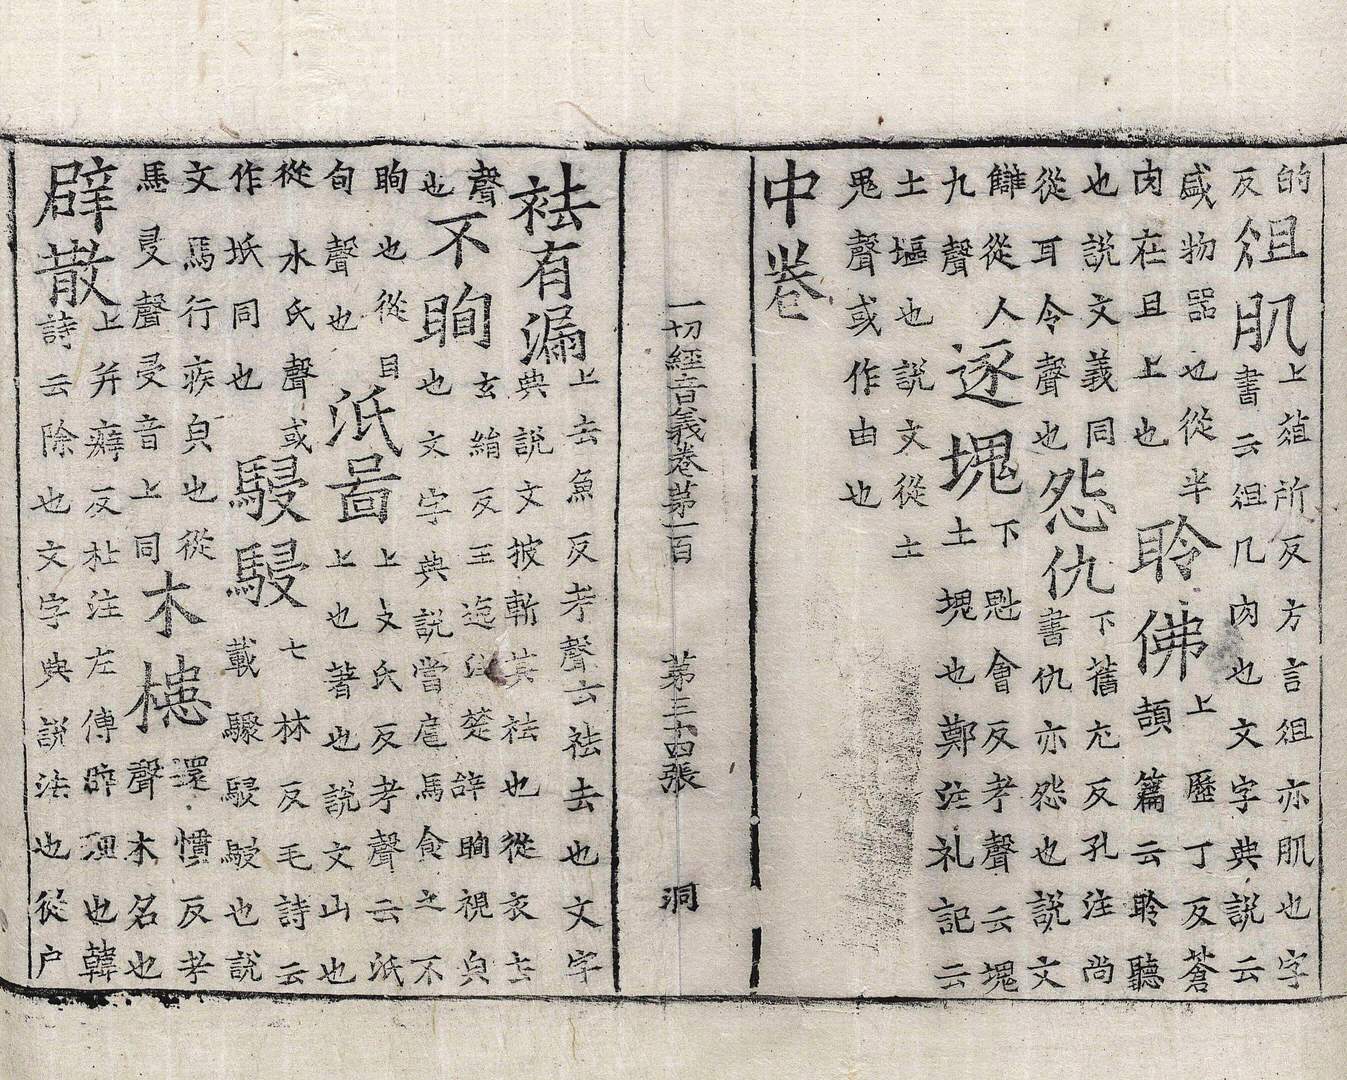 的
反
俎肌
上葅所反方言俎亦肌也字
書云俎几肉也文字典説云
盛物器也從半
肉在且上也
聆佛
上歷丁反蒼
頡篇云聆聽
也説文義同
從耳令聲也
怨仇
下舊尤反孔注尚
書仇亦怨也説文
雠從人
九聲
逐塊
下魁會反考聲云塊
土塊也鄭注礼記云
土堛也説文從土
鬼聲或作由也
中卷
一切經音義卷第一百 第三十四張 洞
袪有漏
上去魚反考聲云袪去也文字
典説文披斬其袪也從衣去
聲
也
不眴
玄絹反王逸注楚辤眴視皃
也文字典説當扈馬食之不
眴也從目
旬聲也
泜啚
上支氏反考聲云泜
上也著也説文山也
從水氏聲或
作坻同也
駸駸
七林反毛詩云
載驟駸駸也説
文馬行疾皃也從
馬𠬶聲𠬶音上同
木槵
還慣反考
聲木名也
辟散
上并癖反杜注左傳辟理也韓
詩云除也文字典説法也從户